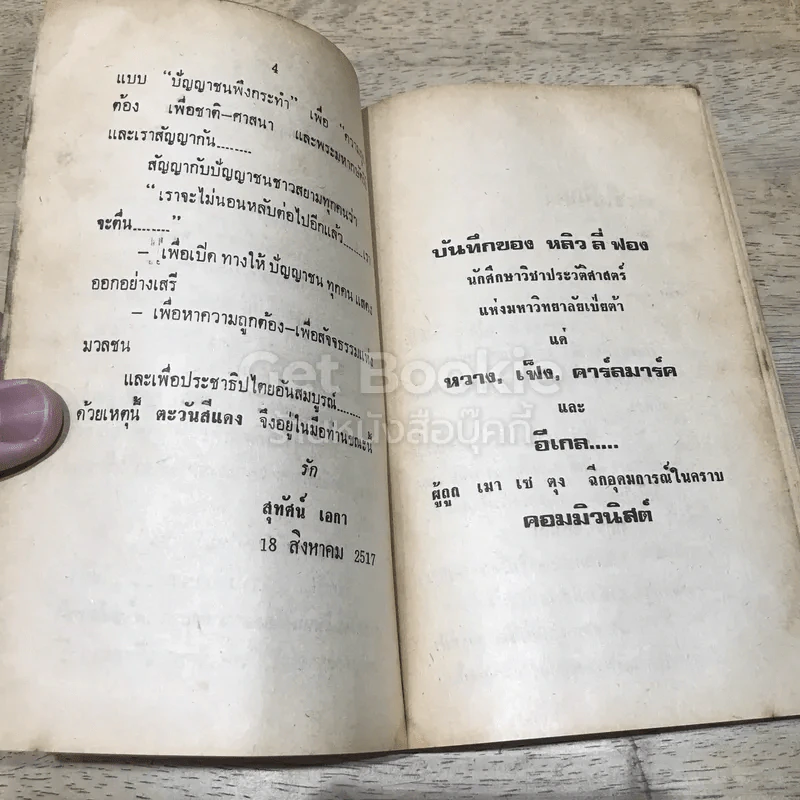 4
แบบ “ปัญญาชนพึงกระทำ” เพื่อ
ต้อง เพื่อชาติ–ศาสนา
และเราสัญญากัน........
สัญญากับปัญญาชนชาวสยามทุกคนว่า
“เราจะไม่นอนหลับต่อไปอีกแล้ว......เรา
จะตื่น........”
– “เพื่อเบิด ทางให้ ปัญญาชน ทุกคน แสดง
ออกอย่างเสรี
– เพื่อหาความถูกต้อง–เพื่อสัจจธรรมแห่ง
มวลชน
และเพื่อประชาธิปไตยอันสมบูรณ์........
ด้วยเหตุนี้ ตะวันสีแดง จึงอยู่ในมือท่านขณะนี้
รัก
สุทัศน์ เอกา
18 สิงหาคม 2517
บันทึกของ หลิว ลี่ ฟอง
นักศึกษาวิชาประวัติศาสตร์
แห่งมหาวิทยาลัยเป่ยต้า
แด่
หวาง, เฟ็ง, คาร์ลมาร์ค
และ
อีเกล.....
ผู้ถูก เมา เซ ตุง ฉีกอุดมการณ์ในคราบ
คอมมิวนิสต์
Get Bookie
ร้านหนังสือบุ๊คกี้